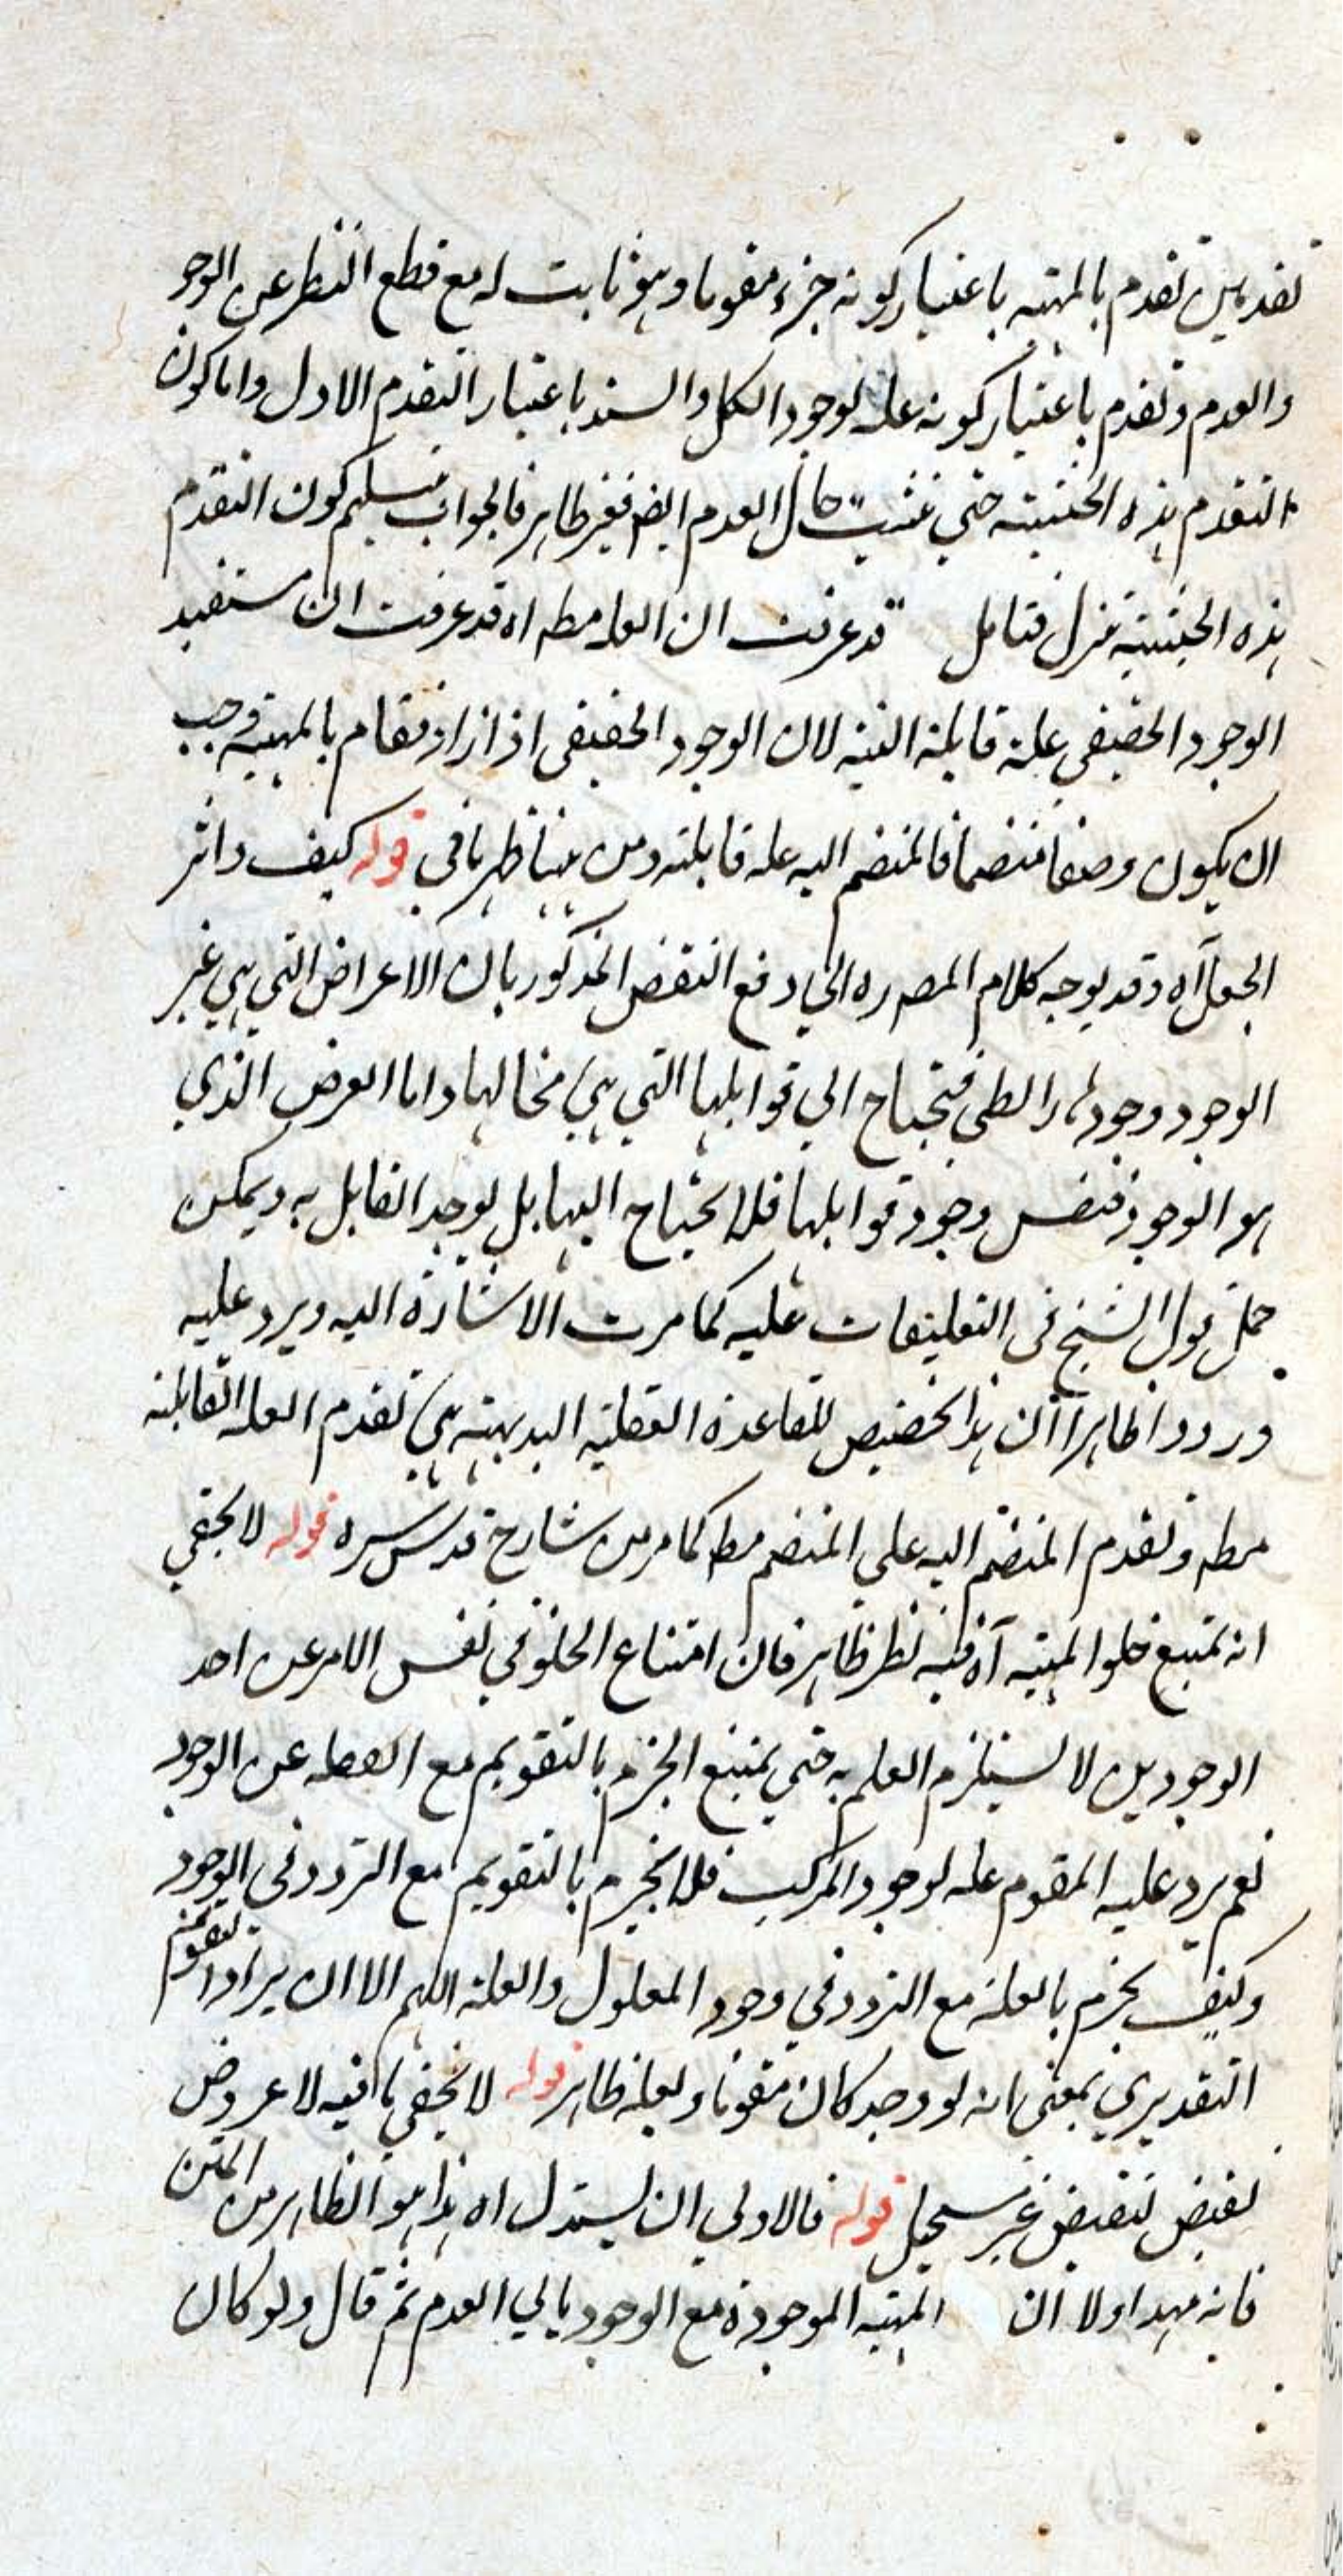 تقدمين تقدم بالمهية باعتبار كونه جزء مقوما وهو ثابت له مع قطع النظر عن الوجود
والعدم وتقدم باعتبار كونه علة لوجود الكل والسند باعتبار التقدم الاول واما كون
التقدم بهذه الحيثية حتى حال العدم ايضا فغير ظاهر فالجواب بتسليم كون التقدم
بهذه الحيثية تنزل فتامل قد عرفت ان العلة مطه اه قد عرفت ان مستفيد
الوجود الحقيقي علة قابلة البتة لان الوجود الحقيقي اذ قام بالمهية وجب
ان يكون وصفا منضما فالمنضم اليه علة قابلته ومن هنا ظهر ما في قوله كيف واثر
الجعل آه وقد يوجه كلام المصره الى دفع النقض المذكور بان الاعراض التي هي غير
الوجود وجودها رابطي فتحتاج الي قوابلها التي هي محالها واما العرض الذي
هو الوجود فنفس وجود قوابلها فلا احتياح اليها بل يوجد القابل به ويمكن
حمل قول الشيخ في التعليقات عليه كما مرت الاشارة اليه ويرد عليه
ورودا ظاهرا ان هذا تخصيص للقاعدة العقلية البديهية هي تقدم العلة القابلة
مطه وتقدم المنضم اليه علي المنضم مطه كما مر من شارح قدس سره قوله لا يخفي
انه يمتنع خلو المهية آه فيه نظر ظاهر فان امتناع الخلو في نفس الامر عن احد
الوجودين لا يستلزم العلم به حتي يمتنع الجزم بالتقويم مع الغفلة عن الوجود
نعم يرد عليه المقوم علة لوجود المركب فلا يجزم بالتقويم مع التردد في الوجود
وكيف يجزم بالعلة مع التردد في وجود المعلول والعلة اللهم الا ان يراد التقويم
التقديري بمعنى انه لو وجد كان مقوما ولعله ظاهر قوله لا يخفي ما فيه لا عروض
نقيض لنقيض غير مستحيل قوله فالاولي ان يستدل اه هذا هو الظاهر من المتن
فانه مهد اولا ان المهية الموجودة مع الوجود يابي العدم ثم قال ولو كان